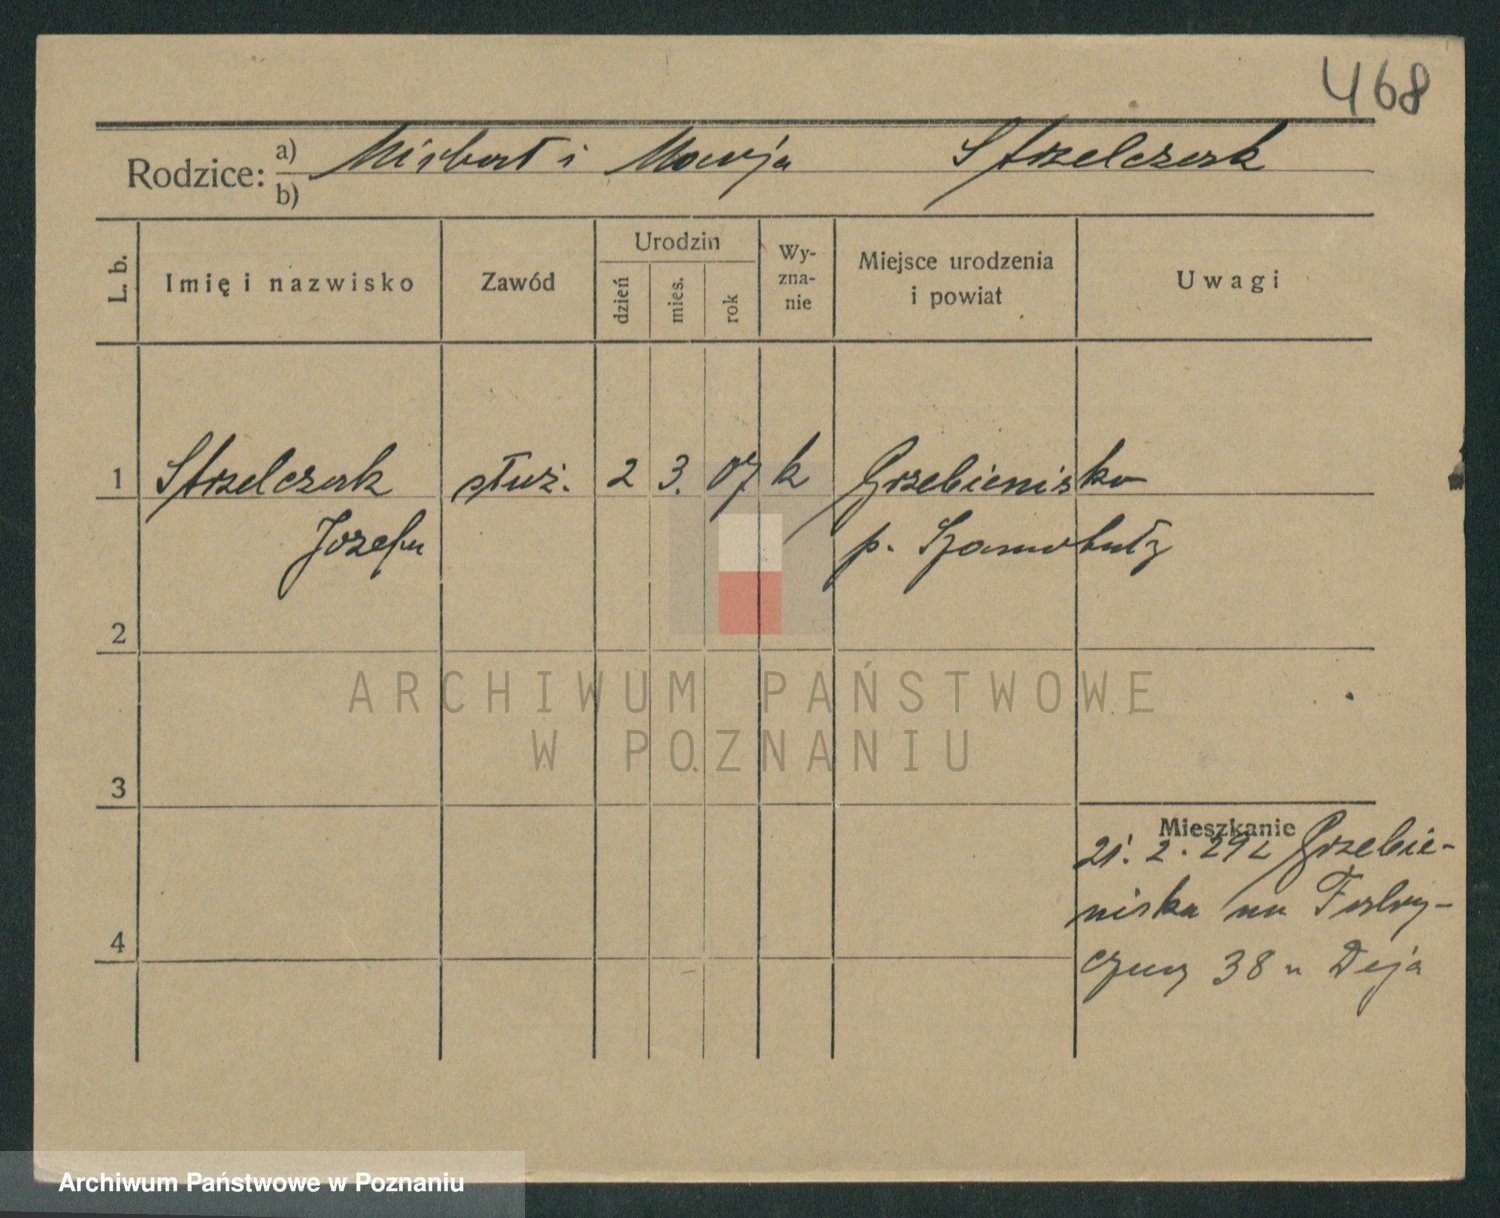 468
Rodzice: a) b) Michał i Marja Strzelczak
L. b. Imię i nazwisko Zawód Urodzin dzień mies. rok Wy-zna-nie Miejsce urodzenia i powiat Uwagi
1 Strzelczak służ. 2 3. 07 k Grzebienisko
Józefa p. Szamotuły
2
ARCHIWUM PAŃSTWOWE
W POZNANIU
3
Mieszkanie
21. 2. 29 z Grzebie-
niska na
4
38 u Deja
Archiwum Państwowe w Poznaniu